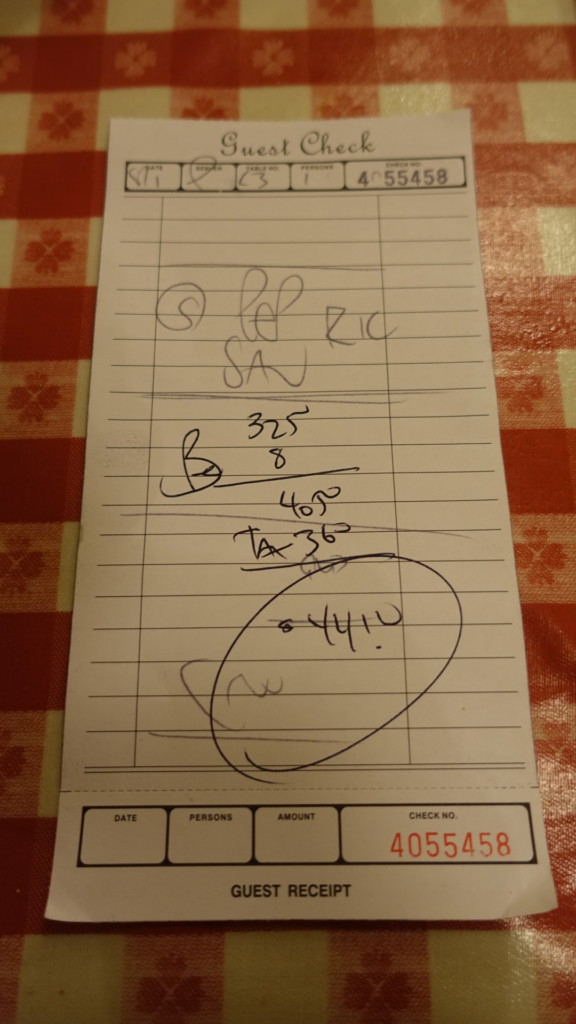 Guest Check
DATE SERVER TABLE NO. PERSONS CHECK NO.
8/1 C3 1 4055458
RIC
SAN
325
8
4050
TAX 360
4410
DATE PERSONS AMOUNT CHECK NO.
4055458
GUEST RECEIPT